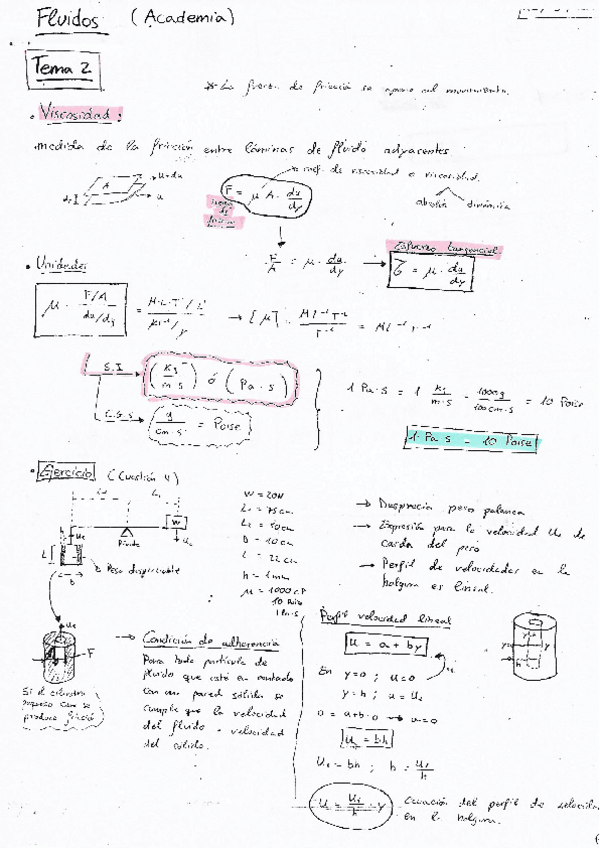 Fluidos (Academia)
Tema 2
* La fuerza de fricción se opone al movimiento.
• Viscosidad:
medida de la fricción entre láminas de fluido adyacentes.
coef. de viscosidad o viscosidad
A u+du u
F = μ A · du/dy
absoluta dinámica
F/A = μ · du/dy → τ = μ · du/dy
Esfuerzo tangencial
• Unidades
→ [μ] = = M L⁻¹ T⁻¹
S.I → (kg/m·s) ó (Pa·s)
1 Pa·s = 1 kg/m·s = 1000g/100cm·s = 10 Poise
C.G.S → g/cm·s = Poise
1 Pa·s = 10 Poise
• Ejercicio (Cuestión 4)
W = 20N
L₁ = 75cm
L₂ = 50cm
D = 10cm
L = 22cm
h = 1mm
μ = 1000 cP
10 Poise
1 Pa·s
Pivote
W
Peso despreciable
→ Desprecia peso palanca
→ Expresión para la velocidad U₂ de
caída del peso
→ Perfil de velocidades en la
holgura es lineal.
→ Condición de adherencia
Para toda partícula de
fluido que está en contacto
con una pared sólida se
cumple que la velocidad
del fluido = velocidad
del sólido.
F
Si el cilindro
produce fricción
Perfil velocidad lineal
u = a + by
En y=0 ; u=0
y=h ; u=U₁
0 = a+b·0 → a=0
U₁ = bh
u = U₁/h · y
Ecuación del perfil de velocidad
en la holgura.